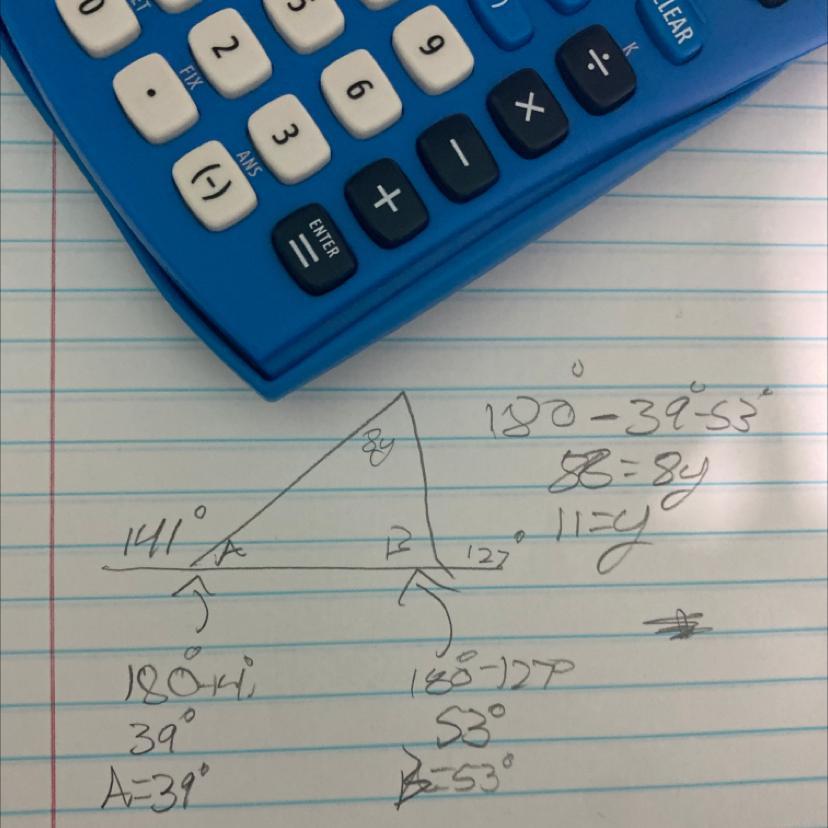 0
2
5
.
FIX
6
9
÷
K
CLEAR
(-)
ANS
3
+
−
×
=
ENTER
180° - 39° - 53°
88 = 8y
11 = y
8y
141°
A
B
127°
180° - 141°
39°
A = 39°
180° - 127°
53°
B = 53°